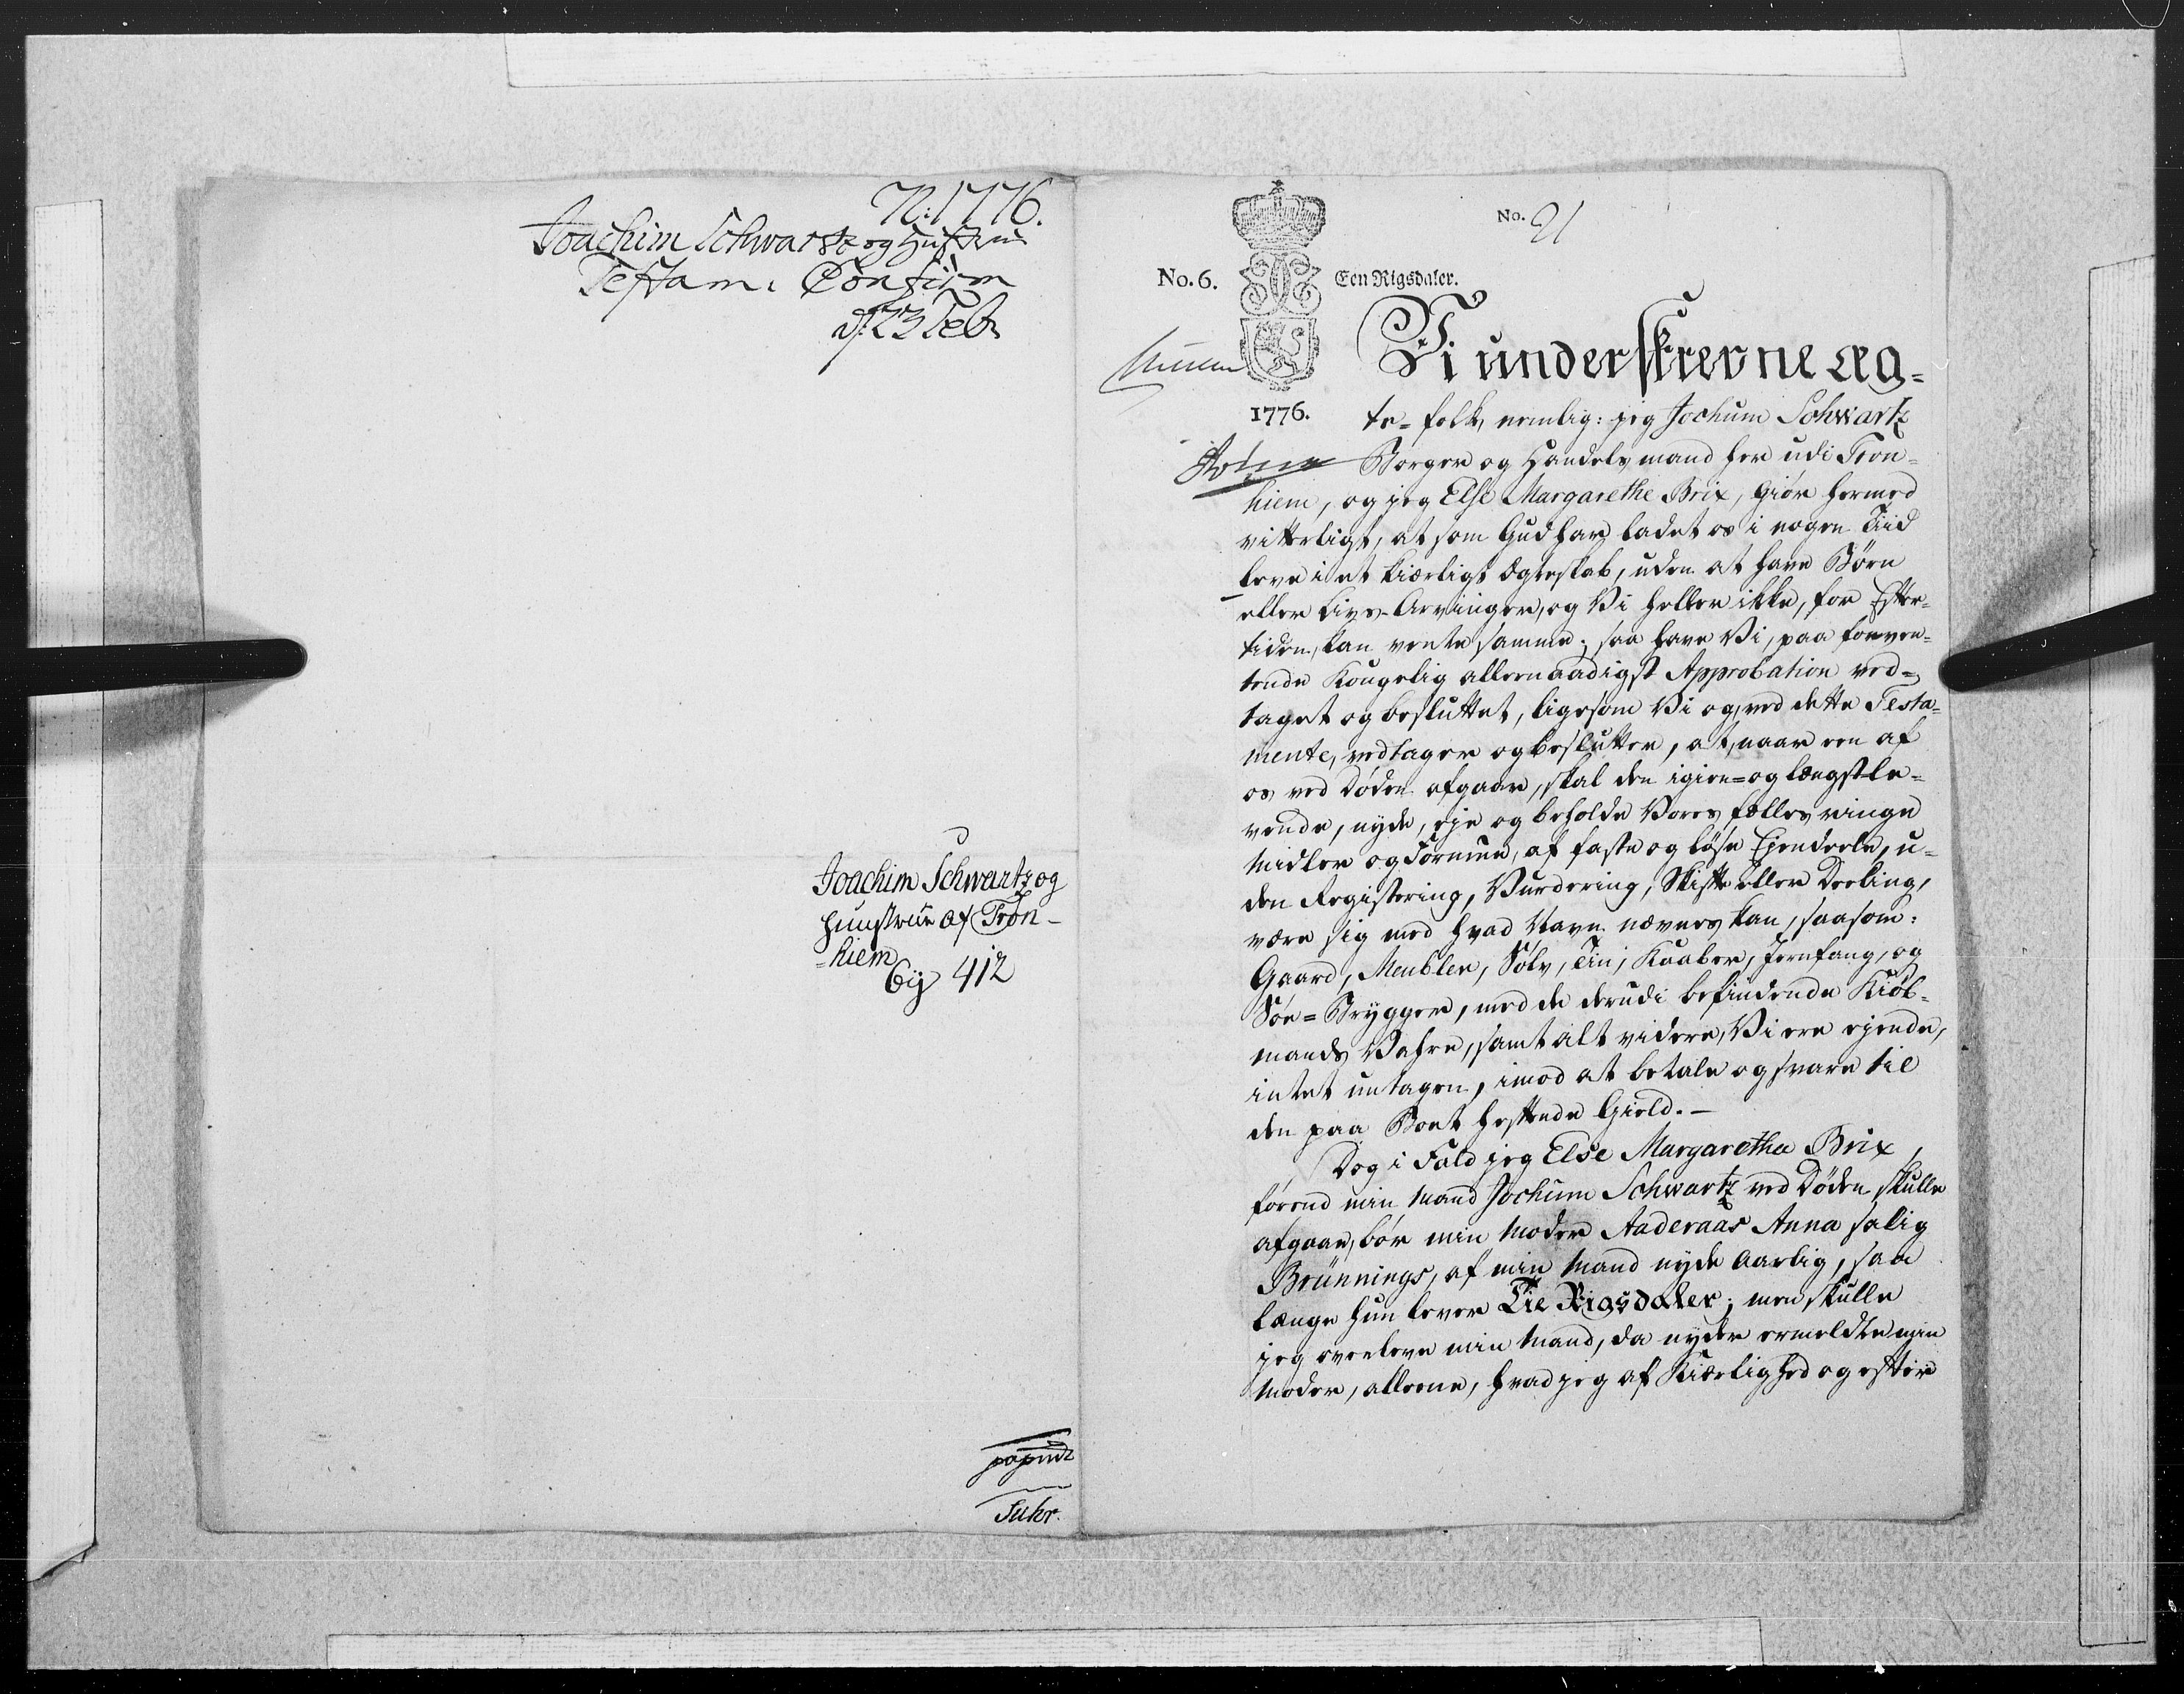 N: 1776.
Joachim Schwartz og Hustrue
Testam: Confirm
d: 23 Feb
Joachim Schwartz og
Huustrue af Tron-
-hiem
412
Suhr.
No. 21
No. 6.
Een Rigsdaler.
1776.
Vi underskrevne æg-
te-folk, nemlig: jeg Jochum Schwartz
Borger og Handelsmand her udi Tron-
hiem, og jeg Else Margarethe Brix, giør hermed
vitterligt, at som Gud har ladet os i nogen Tiid
leve i et kiærligt Ægteskab, uden at have Børn
eller Livs-Arvinger, og Vi heller ikke, for Efter-
tiden, kan vente samme; saa have Vi, paa forven-
tende Kongelig allernaadigst Approbation ved-
taget og besluttet, ligesom Vi og, ved dette Testa-
mente, vedtager og beslutter, at, naar een af
os ved Døden afgaar, skal den igien- og længstle-
vende, nyde, eje og beholde Vores fælles ringe
Midler og Formue, af faste og løse Ejendeele, u-
den Registering, Vurdering, Skifte eller Deeling,
være sig med hvad Navn nævnes kan, saasom:
Gaard, Meubler, Sølv, Tin, Kaaber, Jernfang, og
Søe-Brygger, med de derudi befindende Kiøb-
mands Vahre, samt alt videre, Vi ere ejende,
intet untagen, imod at betale og svare til
den paa Boet heftende Gield. -
Dog i Fald jeg Else Margaretha Brix
førend min Mand Jochum Schwartz ved Døden skulle
afgaae, bør min Moder Aaderaas Anna salig
Brünnings, af min Mand nyde Aarlig, saa
længe hun lever Tie Rigsdaler; men skulle
jeg overleve min Mand, da nyder ermeldte min
Moder, alleene, hvad jeg af Kiærlighed og efter